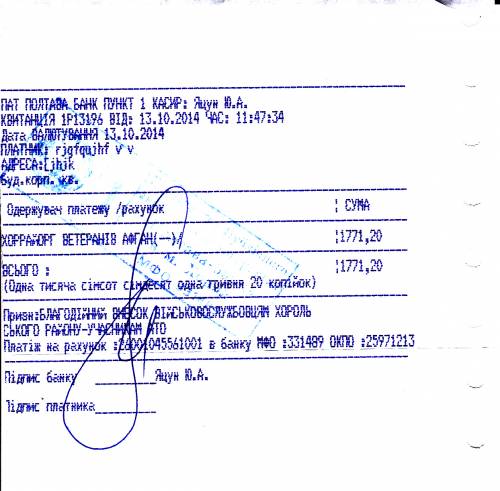 ПАТ ПОЛТАВА БАНК ПУНКТ 1 КАСИР: Яцун Ю.А.
КВИТАНЦІЯ 1P13196 ВІД: 13.10.2014 ЧАС: 11:47:34
Дата ВАЛЮТУВАННЯ 13.10.2014
ПЛАТНИК: rjgfqujhf v v
АДРЕСА:[jhjk
Буд.корп. кв.
Одержувач платежу /рахунок ¦ СУМА
ХОРРАЙОРГ ВЕТЕРАНІВ АФГАН(--)/ ¦1771,20
ВСЬОГО : ¦1771,20
(Одна тисяча сімсот сімдесят одна гривня 20 копійок)
Призн:БЛАГОДІЙНИЙ ВНЕСОК ВІЙСЬКОВОСЛУЖБОВЦЯМ ХОРОЛЬ
СЬКОГО РАЙОНУ-УЧАСНИКАМ АТО
Платіж на рахунок :26001045561001 в банку МФО :331489 ОКПО :25971213
Підпис банку __________Яцун Ю.А.
Підпис платника__________